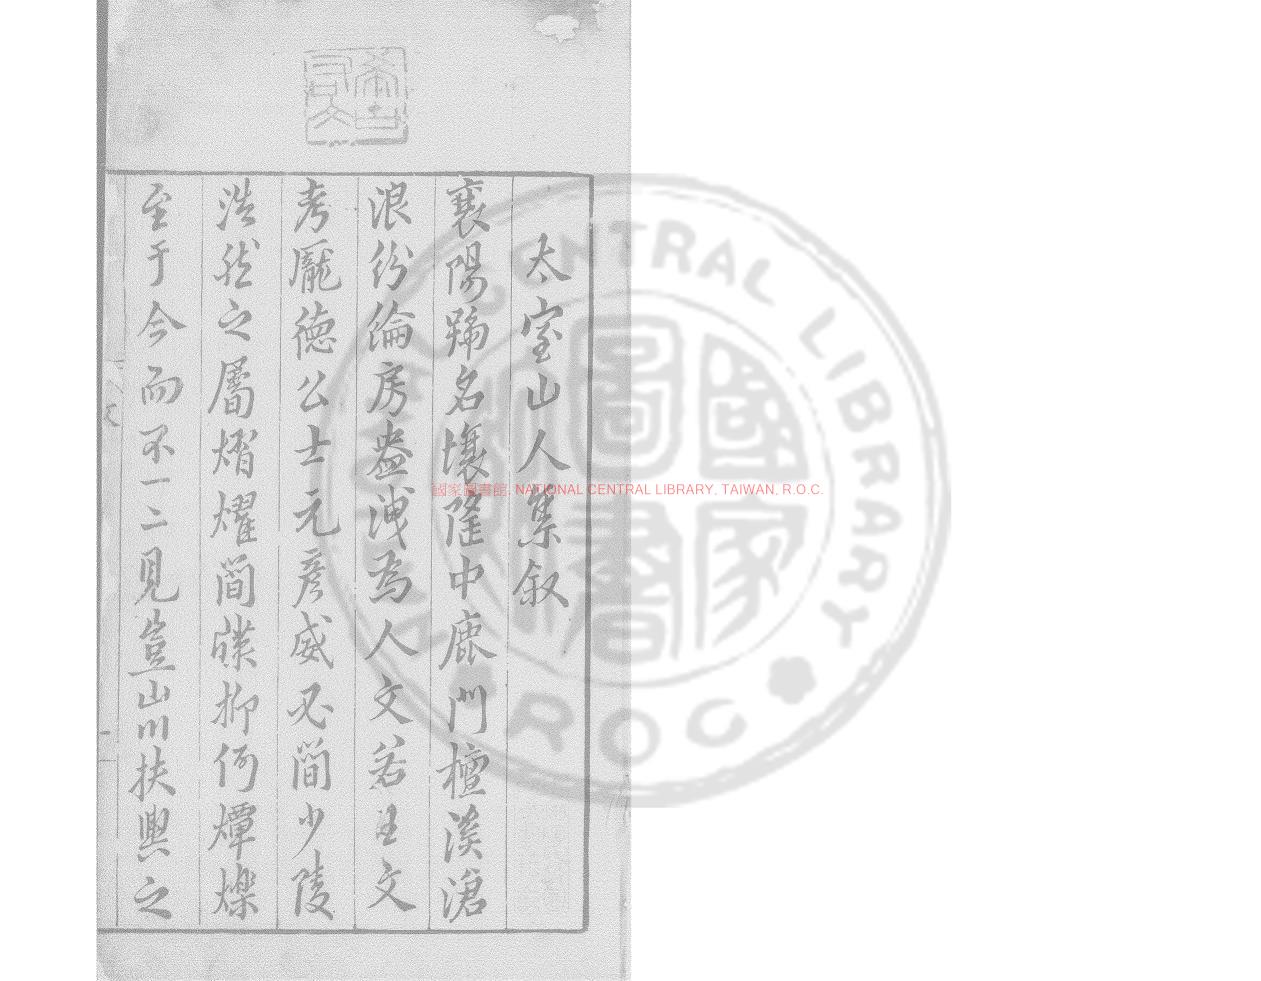 太室山人集叙
襄陽蹄名壤隆中鹿門檀溪滄
浪紛綸房盎洩為人文若王文
考龐德公士元彥威必簡少陵
浩然之屬熠燿簡牒抑何燀爍
至于今而不一二見豈山川扶輿之
國家圖書館, NATIONAL CENTRAL LIBRARY, TAIWAN, R.O.C.
CENTRAL LIBRARY
ROC
國家圖書